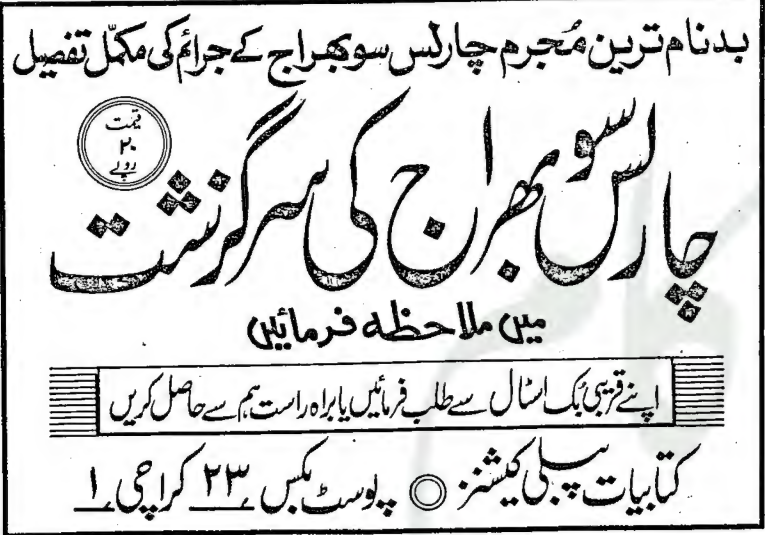 بدنام ترین مُجرم چارلس سوبھراج کے جرائم کی مکمّل تفصیل
قیمت
۲۰
روپے
چارلس سوبھراج کی سرگزشت
میں ملاحظہ فرمائیں
اپنے قریبی بُک اسٹال سے طلب فرمائیں یا براہ راست ہم سے حاصل کریں
کتابیات پبلی کیشنز ◎ پوسٹ بکس ۲۳ کراچی ۱